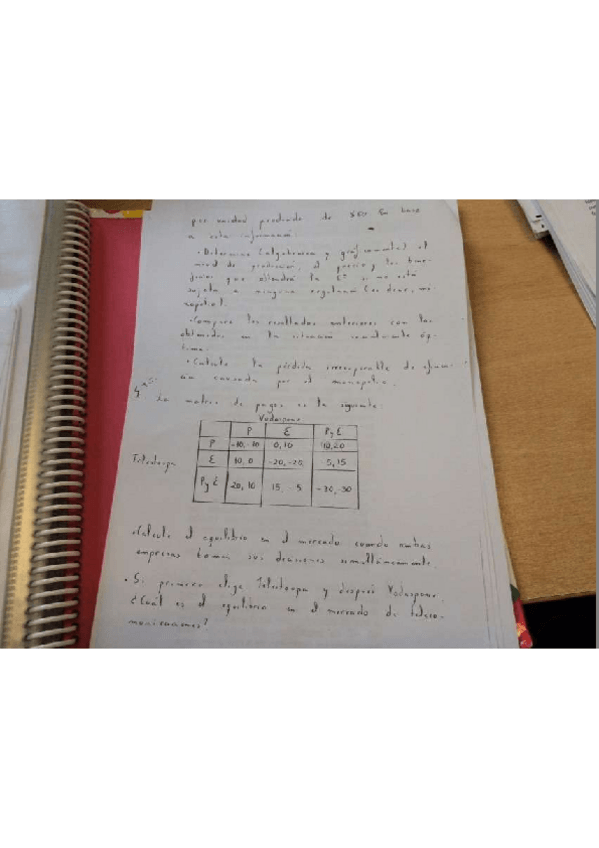 por unidad producida de 50€. En base
a esta información:
· Determine (algebraica y gráficamente) el
nivel de producción, el precio y los bene-
ficios que obtendrá la Eª si no está
sujeta a ninguna regulación (es decir, mo
nopolio).
· Compare los resultados anteriores con los
obtenidos en la situación socialmente óp
tima.
· Calcule la pérdida irrecuperable de eficien
cia causada por el monopolio.
La matriz de pagos es la siguiente:
Vodaspone
P E P y E
P -10,-10 0,10 10,20
Teledoepa E 10,0 -20,-20 -5,15
P y E 20,10 15,-5 -30,-30
· Calcule el equilibrio en el mercado cuando ambas
empresas toman sus decisiones simultáneamente.
· Si primero elige y después Vodaspone.
¿Cuál es el equilibrio en el mercado de teleco-
municaciones?